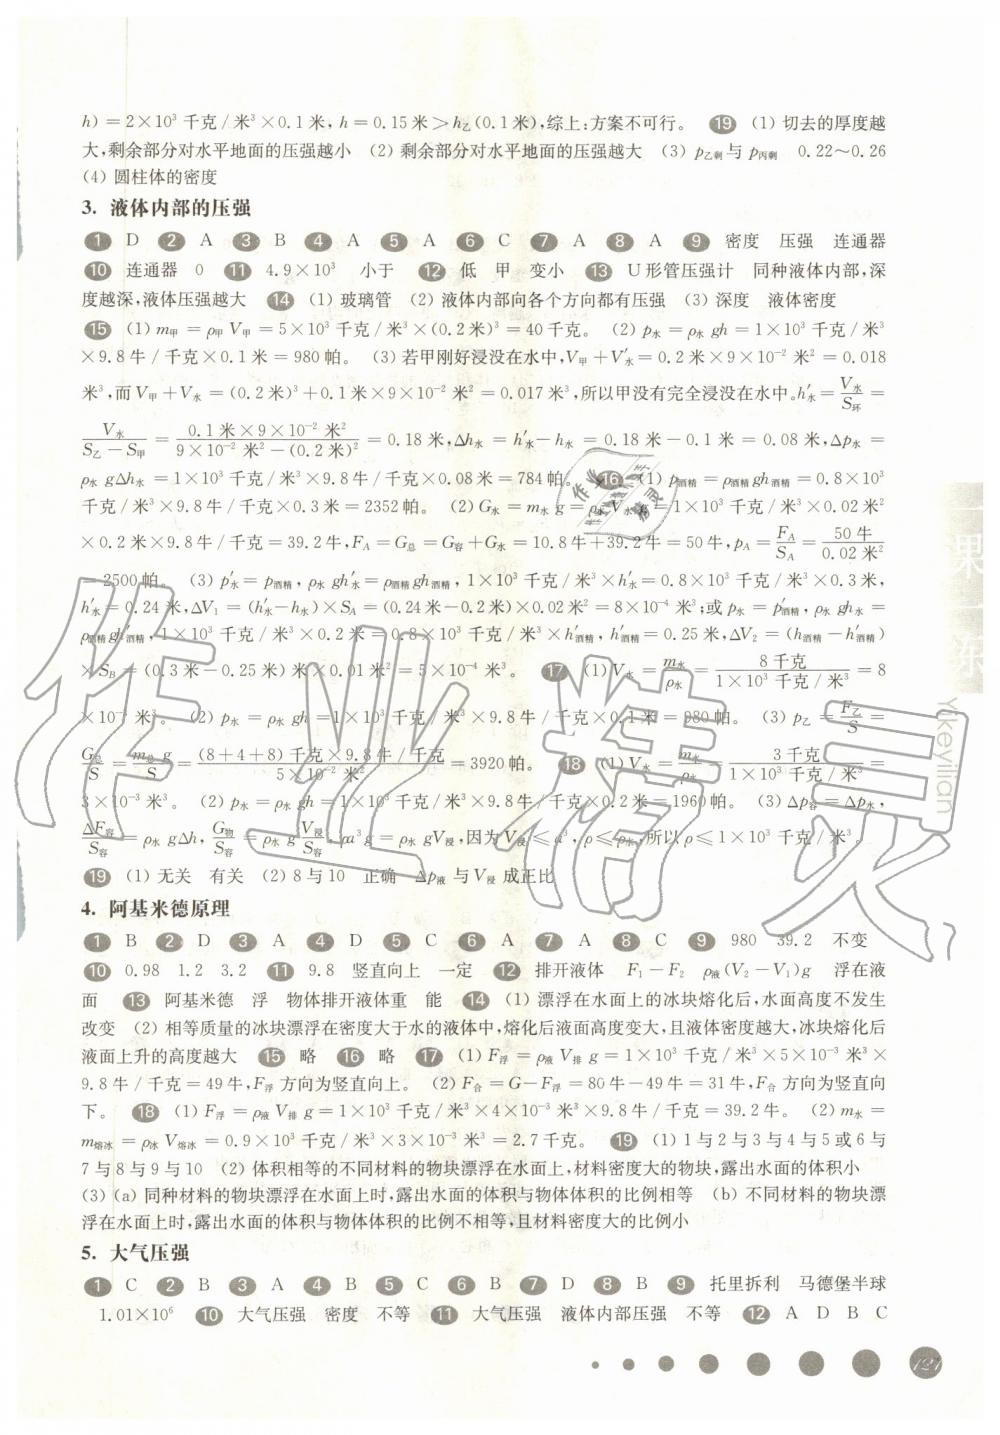 h) = 2×10³ 千克/米³×0.1米, h = 0.15米 > h乙(0.1米),综上:方案不可行。 19 (1) 切去的厚度越
大,剩余部分对水平地面的压强越小 (2) 剩余部分对水平地面的压强越大 (3) p乙剩 与 p丙剩 0.22~0.26
(4) 圆柱体的密度
3. 液体内部的压强
1 D 2 A 3 B 4 A 5 A 6 C 7 A 8 A 9 密度 压强 连通器
10 连通器 0 11 4.9×10³ 小于 12 低 甲 变小 13 U形管压强计 同种液体内部,深
度越深,液体压强越大 14 (1) 玻璃管 (2) 液体内部向各个方向都有压强 (3) 深度 液体密度
15 (1) m甲 = ρ甲 V甲 = 5×10³ 千克/米³×(0.2米)³ = 40千克。 (2) p水 = ρ水 gh = 1×10³ 千克/米³
×9.8牛/千克×0.1米 = 980帕。 (3) 若甲刚好浸没在水中,V甲 + V′水 = 0.2米×9×10⁻² 米² = 0.018
米³,而 V甲 + V水 = (0.2米)³ + 0.1米×9×10⁻² 米² = 0.017米³,所以甲没有完全浸没在水中。h′水 = V水/S环 =
V水/(S乙 − S甲) = 0.1米×9×10⁻² 米²/(9×10⁻² 米² − (0.2米)²) = 0.18米,Δh水 = h′水 − h水 = 0.18米 − 0.1米 = 0.08米,Δp水 =
ρ水 gΔh水 = 1×10³ 千克/米³×9.8牛/千克×0.08米 = 784帕。 16 (1) p酒精 = ρ酒精 gh酒精 = 0.8×10³
千克/米³×9.8牛/千克×0.3米 = 2352帕。 (2) G水 = m水 g = ρ水 V水 g = 1×10³ 千克/米³×0.02米²
×0.2米×9.8牛/千克 = 39.2牛,F_A = G总 = G容 + G水 = 10.8牛 + 39.2牛 = 50牛,p_A = F_A/S_A = 50牛/0.02米²
= 2500帕。 (3) p′水 = p′酒精, ρ水 gh′水 = ρ酒精 gh酒精, 1×10³ 千克/米³×h′水 = 0.8×10³ 千克/米³×0.3米,
h′水 = 0.24米,ΔV₁ = (h′水 − h水)×S_A = (0.24米 − 0.2米)×0.02米² = 8×10⁻⁴ 米³;或 p水 = p′酒精, ρ水 gh水 =
ρ酒精 gh′酒精, 1×10³ 千克/米³×0.2米 = 0.8×10³ 千克/米³×h′酒精, h′酒精 = 0.25米,ΔV₂ = (h酒精 − h′酒精)
×S_B = (0.3米 − 0.25米)×0.01米² = 5×10⁻⁴ 米³。 17 (1) V水 = m水/ρ水 = 8千克/(1×10³ 千克/米³) = 8
×10⁻³ 米³。 (2) p水 = ρ水 gh = 1×10³ 千克/米³×9.8牛/千克×0.1米 = 980帕。 (3) p乙 = F乙/S =
G总/S = m总 g/S = (8+4+8)千克×9.8牛/千克/(5×10⁻² 米²) = 3920帕。 18 (1) V水 = m水/ρ水 = 3千克/(1×10³ 千克/米³) =
3×10⁻³ 米³。 (2) p水 = ρ水 gh = 1×10³ 千克/米³×9.8牛/千克×0.2米 = 1960帕。 (3) Δp容 = Δp水,
ΔF容/S容 = ρ水 gΔh, G物/S容 = ρ水 g V浸/S容, ρa³g = ρ水 gV浸,因为 V浸 ≤ a³, ρ ≤ ρ水,所以 ρ ≤ 1×10³ 千克/米³。
19 (1) 无关 有关 (2) 8与10 正确 Δp液 与 V浸 成正比
4. 阿基米德原理
1 B 2 D 3 A 4 D 5 C 6 A 7 A 8 C 9 980 39.2 不变
10 0.98 1.2 3.2 11 9.8 竖直向上 一定 12 排开液体 F₁ − F₂ ρ液(V₂ − V₁)g 浮在液
面 13 阿基米德 浮 物体排开液体重 能 14 (1) 漂浮在水面上的冰块熔化后,水面高度不发生
改变 (2) 相等质量的冰块漂浮在密度大于水的液体中,熔化后液面高度变大,且液体密度越大,冰块熔化后
液面上升的高度越大 15 略 16 略 17 (1) F浮 = ρ液 V排 g = 1×10³ 千克/米³×5×10⁻³ 米³×
9.8牛/千克 = 49牛,F浮 方向为竖直向上。 (2) F合 = G − F浮 = 80牛 − 49牛 = 31牛,F合 方向为竖直向
下。 18 (1) F浮 = ρ液 V排 g = 1×10³ 千克/米³×4×10⁻³ 米³×9.8牛/千克 = 39.2牛。 (2) m水 =
m熔冰 = ρ冰 V熔冰 = 0.9×10³ 千克/米³×3×10⁻³ 米³ = 2.7千克。 19 (1) 1与2与3与4与5或6与
7与8与9与10 (2) 体积相等的不同材料的物块漂浮在水面上,材料密度大的物块,露出水面的体积小
(3) (a) 同种材料的物块漂浮在水面上时,露出水面的体积与物体体积的比例相等 (b) 不同材料的物块漂
浮在水面上时,露出水面的体积与物体体积的比例不相等,且材料密度大的比例小
5. 大气压强
1 C 2 B 3 A 4 B 5 C 6 B 7 D 8 B 9 托里拆利 马德堡半球
1.01×10⁶ 10 大气压强 密度 不等 11 大气压强 液体内部压强 不等 12 A D B C
121
一课一练
Yikeyilian
作业精灵
作业精灵